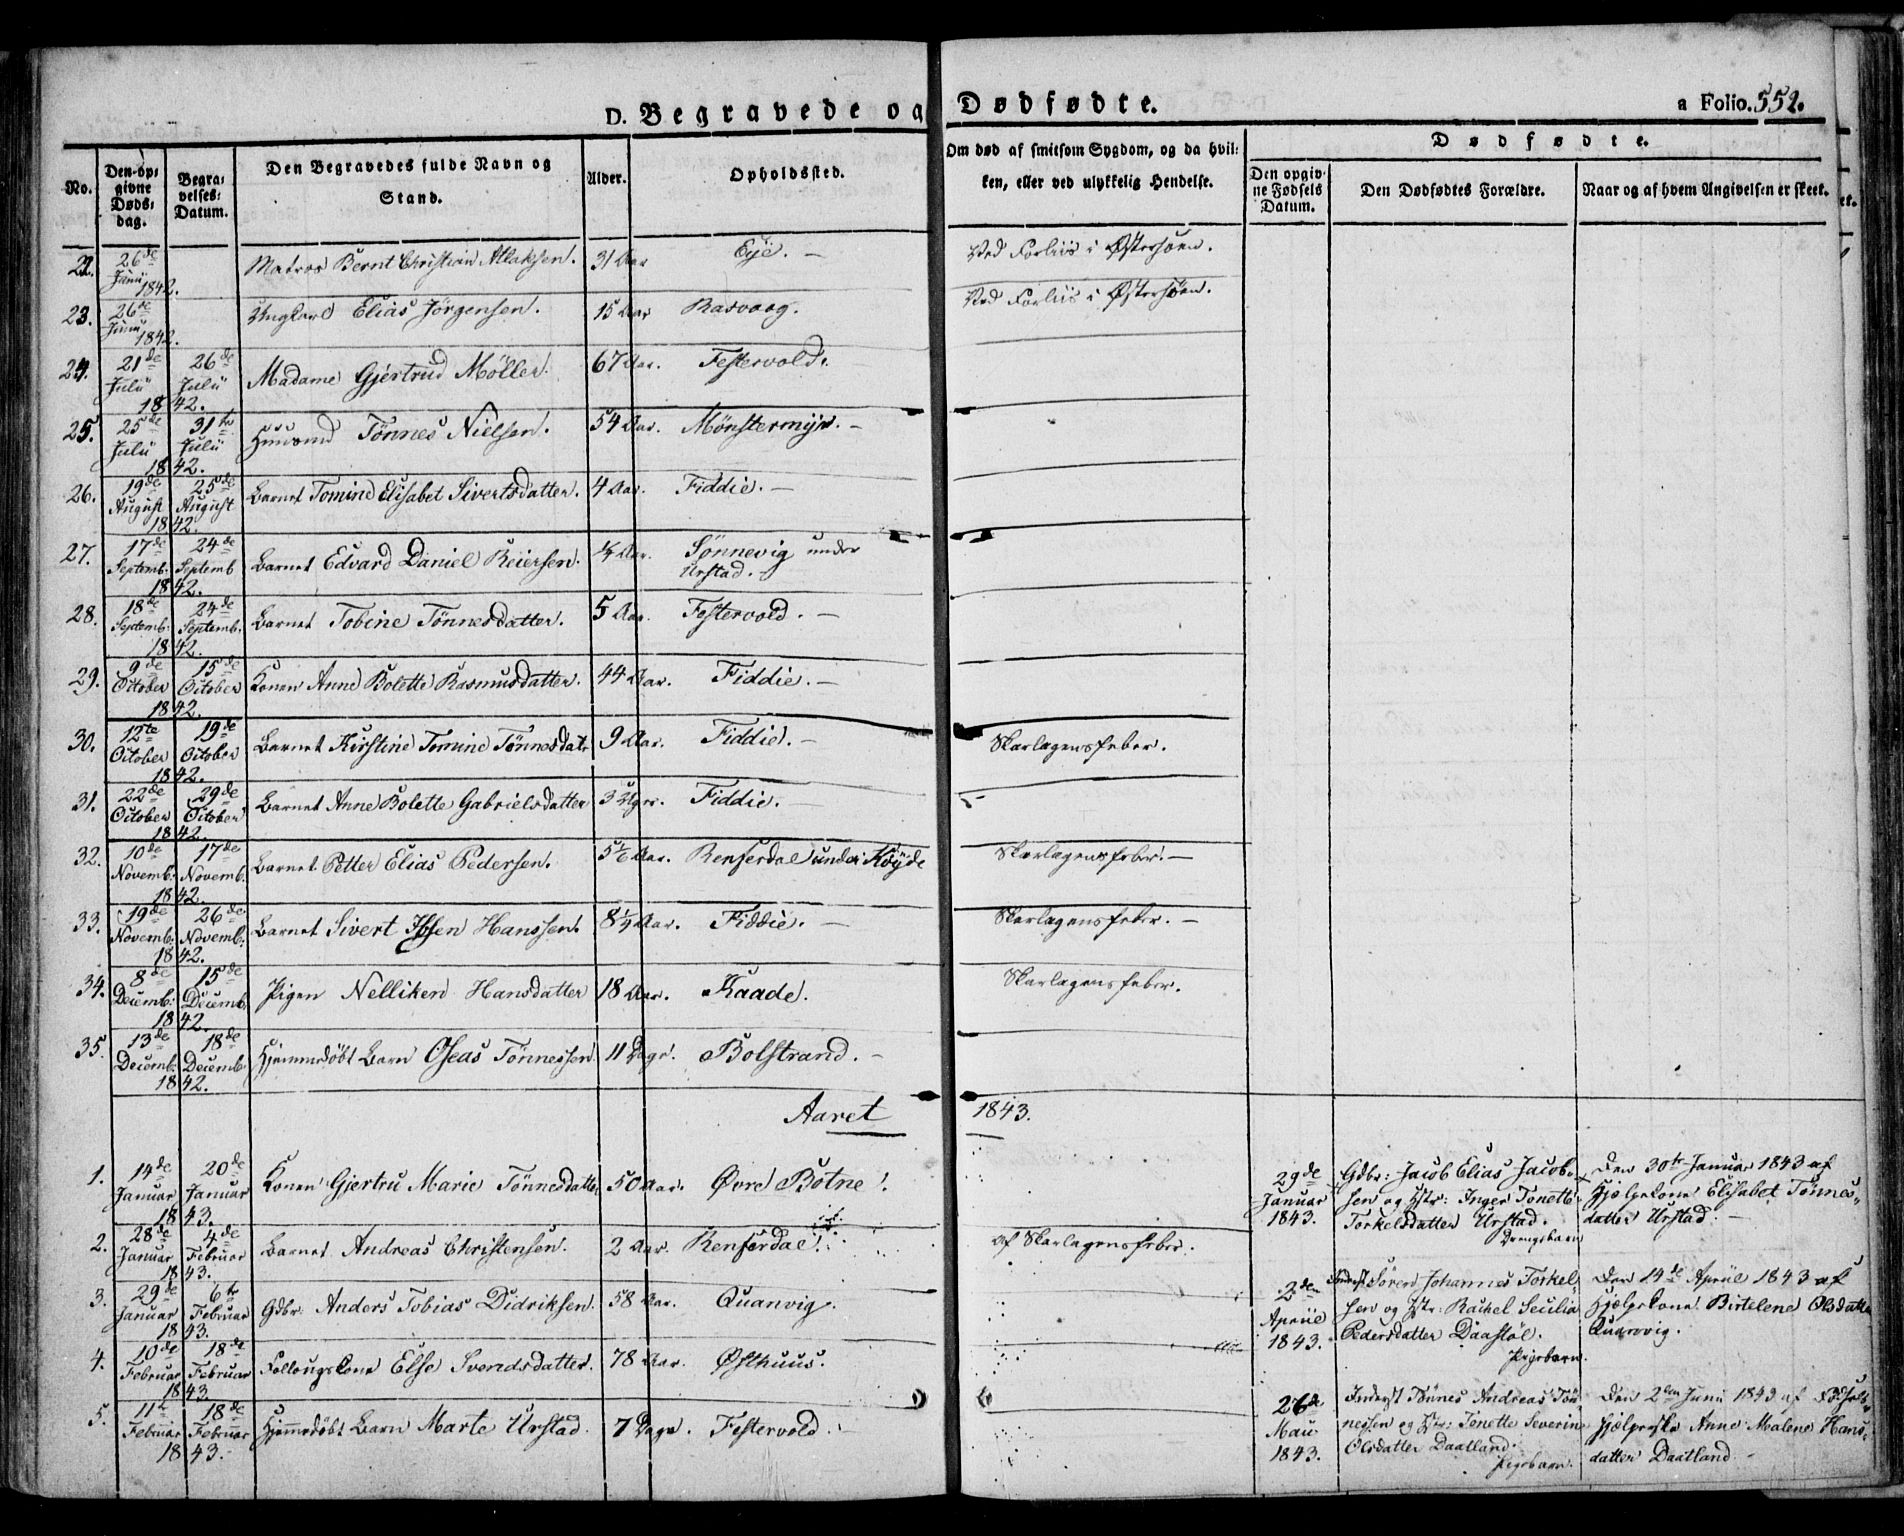 D. Begravede og Dødfødte. a Folio. 552.
No. Den opgivne Døds-dag. Begravelses-Datum. Den Begravedes fulde Navn og Stand. Alder. Opholdssted. Om død af smitsom Sygdom, og da hvilken, eller ved ulykkelig Hendelse.
Dødfødte.
Den opgivne Fødsels Datum. Den Dødfødtes Forældre. Naar og af hvem Angivelsen er skeet.
22. 26de Junii 1842. Matros Bernt Christian Allaksen. 31 Aar Eye. — Ved Forliis i Østersøen.
23. 26de Junii 1842. Ungkarl Elias Jörgensen. 15 Aar Rasvaag. Ved Forliis i Østersøen.
24. 21de Julii 26de Julii 1842. Madame Gjertrud Möller. 67 Aar. Festervold.
25. 25de Julii 31te Julii 1842. Huusmd Tönnes Nielsen. 54 Aar. Mönstermyr. —
26. 19de August 25de August 1842. Barnet Tomine Elisabet Sivertsdatter. 4 Aar. Fiddie. —
27. 17de Septemb: 24de Septemb 1842. Barnet Edvard Daniel Reiersen. ¼ Aar. Sönnevig under Urstad. —
28. 18de Septemb: 24de Septemb: 1842. Barnet Tobine Tönnesdatter. 5 Aar. Festervold. —
29. 9de October 15de October 1842. Konen Anne Bolette Rasmusdatter. 44 Aar. Fiddie. —
30. 12te October 19de October 1842. Barnet Kirstine Tomine Tönnesdatr 9 Aar. Fiddie. — Skarlagensfeber.
31. 22de October 29de October 1842. Barnet Anne Bolette Gabrielsdatter 3 Ugr. Fiddie.
32. 10de Novemb: 17de Novemb. 1842. Barnet Petter Elias Pedersen. 5½ Aar. Renserdal under Köyde Skarlagensfeber. —
33. 19de Novemb: 26de Novemb: 1842. Barnet Sivert Ibsen Hanssen. 8½ Aar. Fiddie. — Skarlagensfeber. —
34. 8de Decemb: 15de Decemb. 1842. Pigen Nelliken Hansdatter 18 Aar. Kaade. Skarlagensfeber.
35. 13de Decemb. 18de Decemb. 1842. Hjemmedöbt Barn Oseas Tönnessen 11 Dage. Bolstrand. —
Aaret 1843.
1. 14de Januar 20de Januar 1843. Konen Gjertru Marie Tönnesdatter 50 Aar. Øvre Botne.
2. 28de Januar 4de Februar 1843. Barnet Andreas Christensen. 2 Aar. Renserdal. af Skarlagensfeber.
3. 29de Januar 6te Februar 1843. Gdbr: Anders Tobias Didriksen. 58 Aar. Quanvig.
4. 10de Februar 18de Februar 1843. Follougskone Else Svendsdatter. 78 Aar. Østhuus.
5. 11te Februar 18de Februar 1843. Hjemmedöbt Barn Marte Urstad. 7 Dage. Festervold.
29de Januar 1843. Gdbr: Jacob Elias Jacobsen og Hstr: Inger Tonette Torkelsdatter Urstad. Drengebarn Den 30te Januar 1843 af Hjælpekone Elisabet Tönnesdatter Urstad. —
2den Apriil 1843. Inderst Sören Johannes Torkelsen og Hstr: Rachel Secilia Pedersdatter Daastöl. Pigebarn. Den 14de Apriil 1843 af Hjælpekone Birtelene Olsdatter Quarvig.
26de Mai 1843. Inderst Tönnes Andreas Tönnessen og Hstr: Tonette Severine Olsdatter Daatland. Pigebarn. Den 2den Junii 1843 af Hjælperske Anne Malene Hansdatter Daatland. —